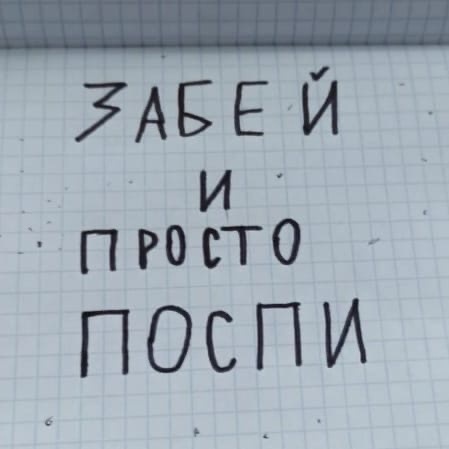 ЗАБЕЙ
И
ПРОСТО
ПОСПИ